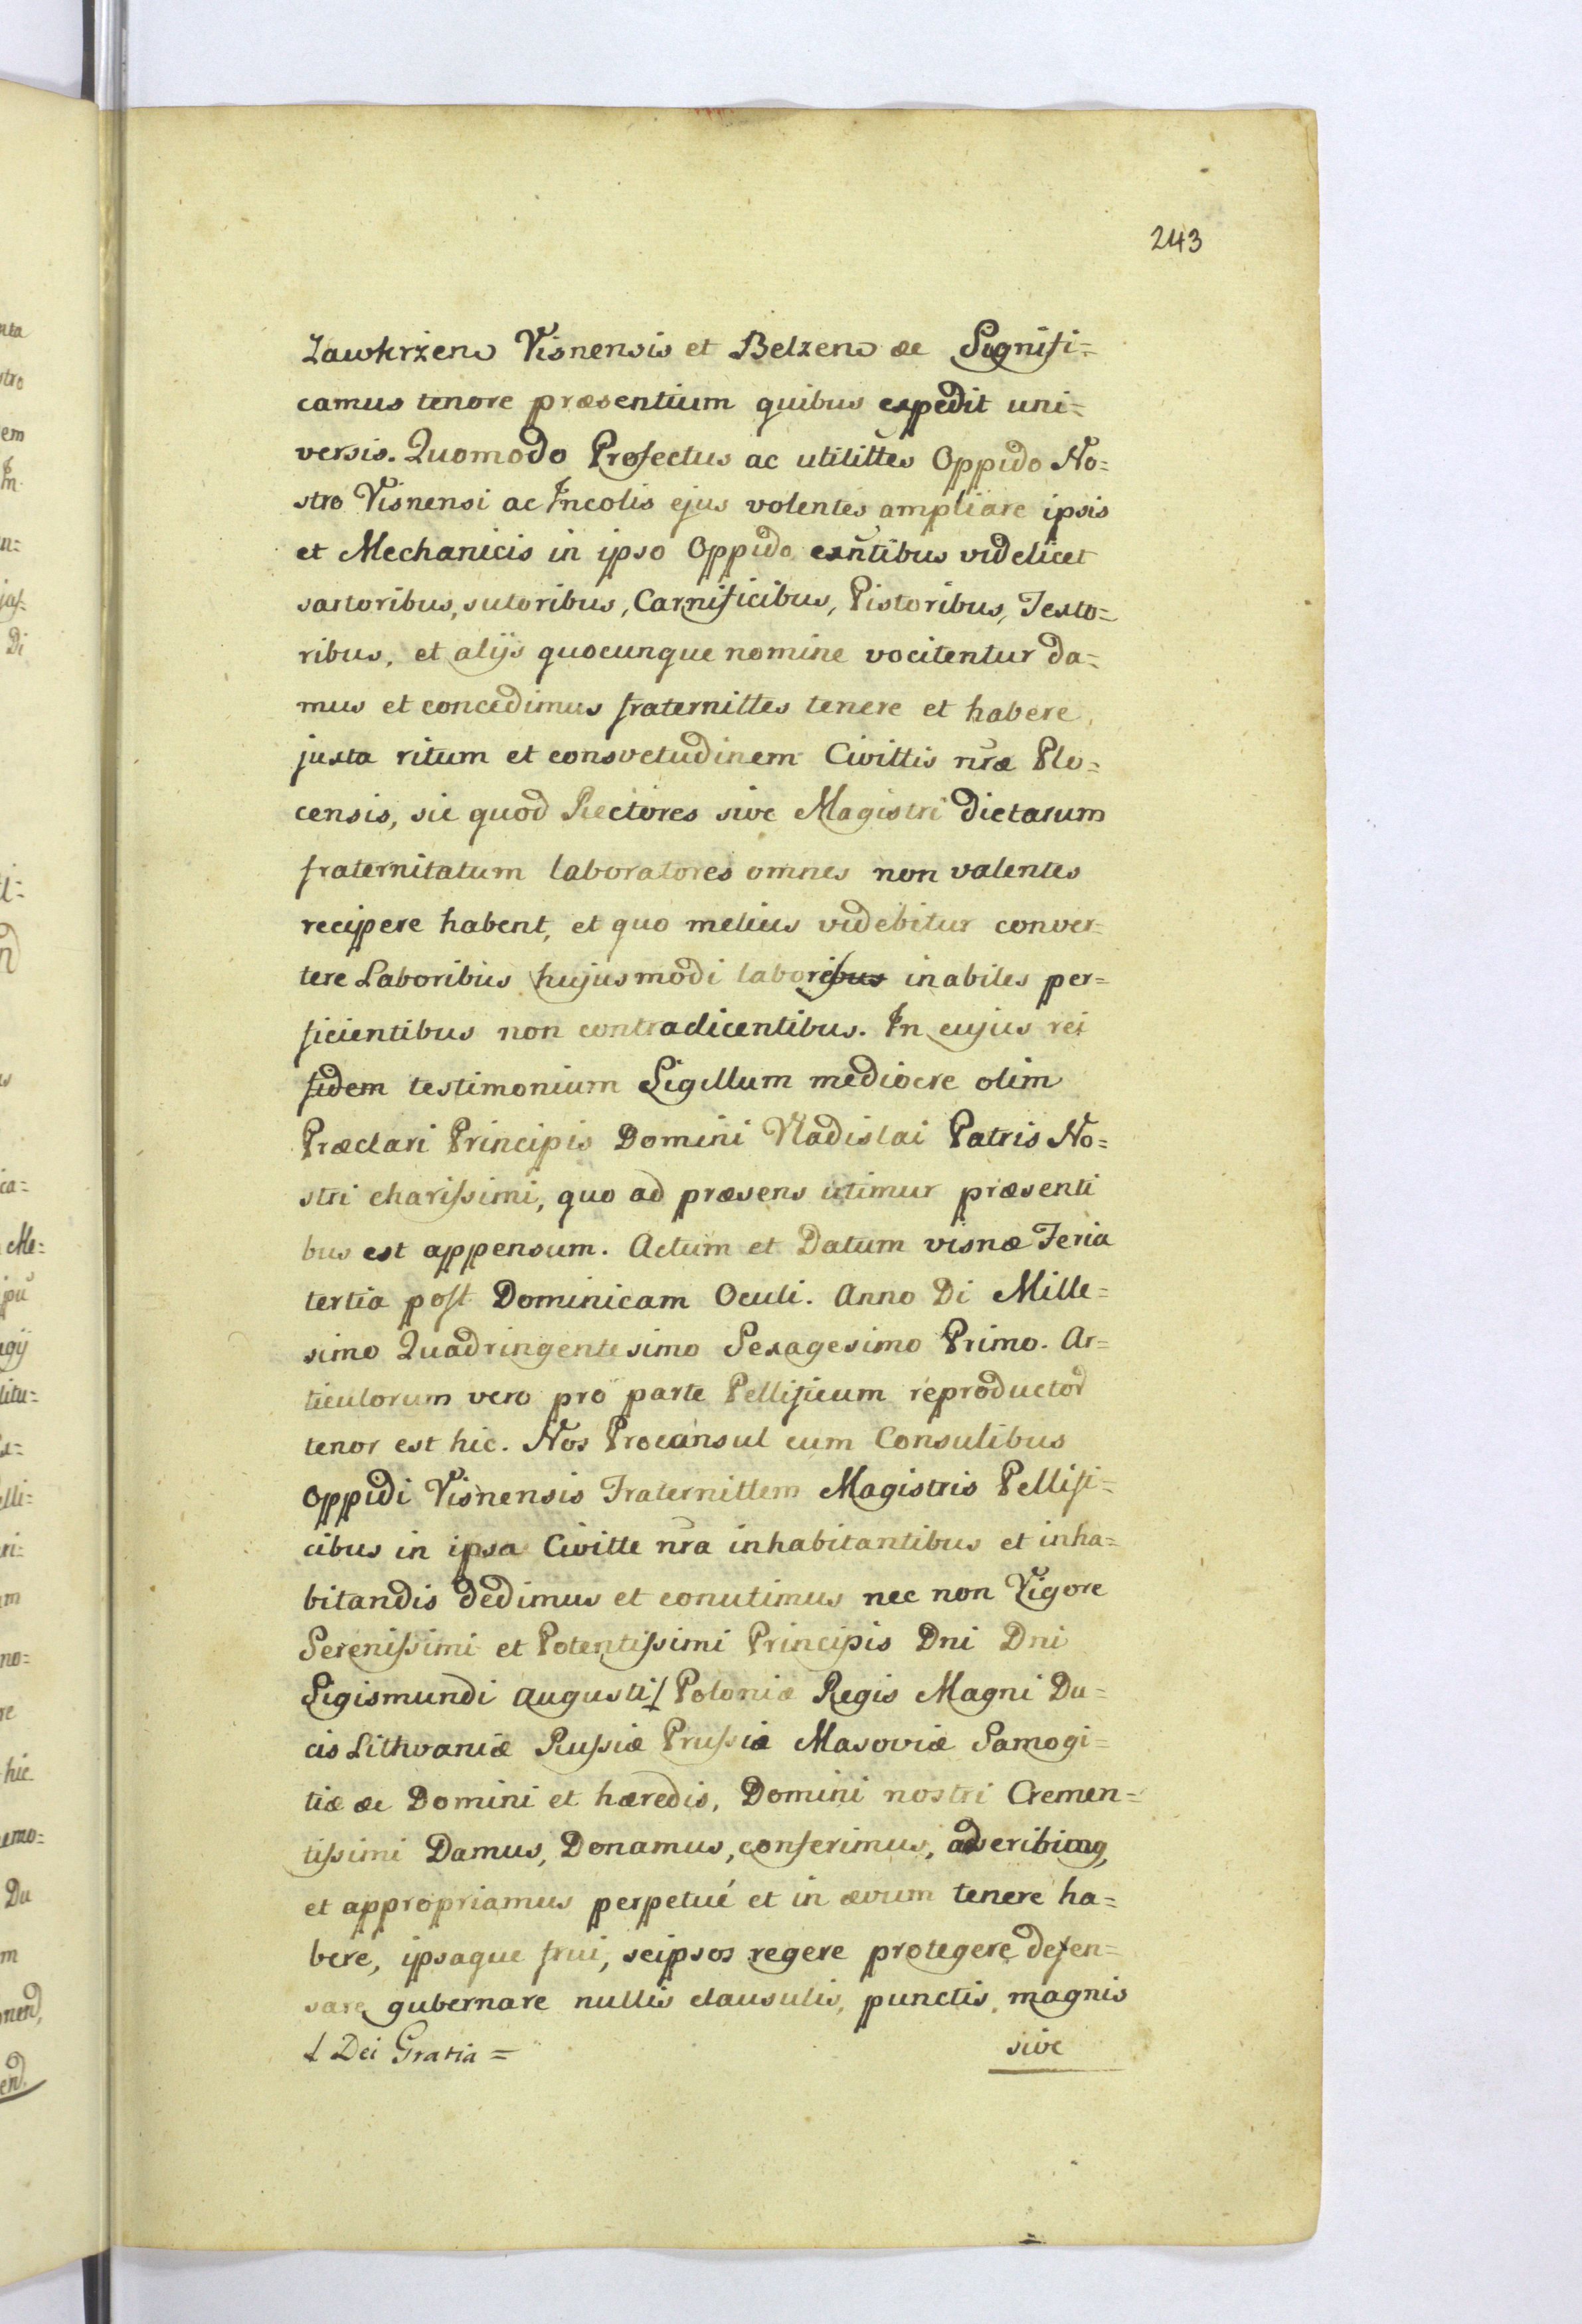 243
Zawkrzens Visnensis et Belzens &c Signifi=
camus tenore præsentium quibus expedit uni=
versis. Quomodo Profectus ac utilittes Oppido No=
stro Visnensi ac Incolis ejus volentes ampliare ipsis
et Mechanicis in ipso Oppido exñtibus videlicet
sartoribus, sutoribus, Carnificibus, Pistoribus, Texto=
ribus, et alijs quocunque nomine vocitentur da=
mus et concedimus fraternittes tenere et habere,
juxta ritum et consvetudinem Civittis nr̃æ Plo=
censis, sic quod Rectores sive Magistri dictarum
fraternitatum laboratores omnes non valentes
recipere habent, et quo melius videbitur conver=
tere Laboribus hujusmodi laboribus inabiles per=
ficientibus non contradicentibus. In cujus rei
fidem testimonium Sigillum mediocre olim
Præclari Principis Domini Vladislai Patris No=
stri charissimi, quo ad præsens utimur præsenti
bus est appensum. Actum et Datum visnæ Feria
tertia post Dominicam Oculi. Anno Di Mille=
simo Quadringentesimo Sexagesimo Primo. Ar=
ticulorum vero pro parte Pellificum reproductor̃
tenor est hic. Nos Procansul cum Consulibus
Oppidi Visnensis Fraternittem Magistris Pellifi=
cibus in ipsa Civitte nr̃a inhabitantibus et inha=
bitandis dedimus et conutimus nec non Vigore
Serenissimi et Potentissimi Principis Dni Dni
Sigismundi Augusti ⌊ Poloniæ Regis Magni Du=
cis Lithvaniæ Russiæ Prussiæ Masoviæ Samogi=
tiæ &c Domini et hæredis, Domini nostri Cremen=
tissimi Damus, Donamus, conferimus, adscribimus,
et appropriamus perpetué et in ævum tenere ha=
bere, ipsaque frui, seipsos regere protegere defen=
sare gubernare nullis clausulis, punctis, magnis
⌊ Dei Gratia =
sive